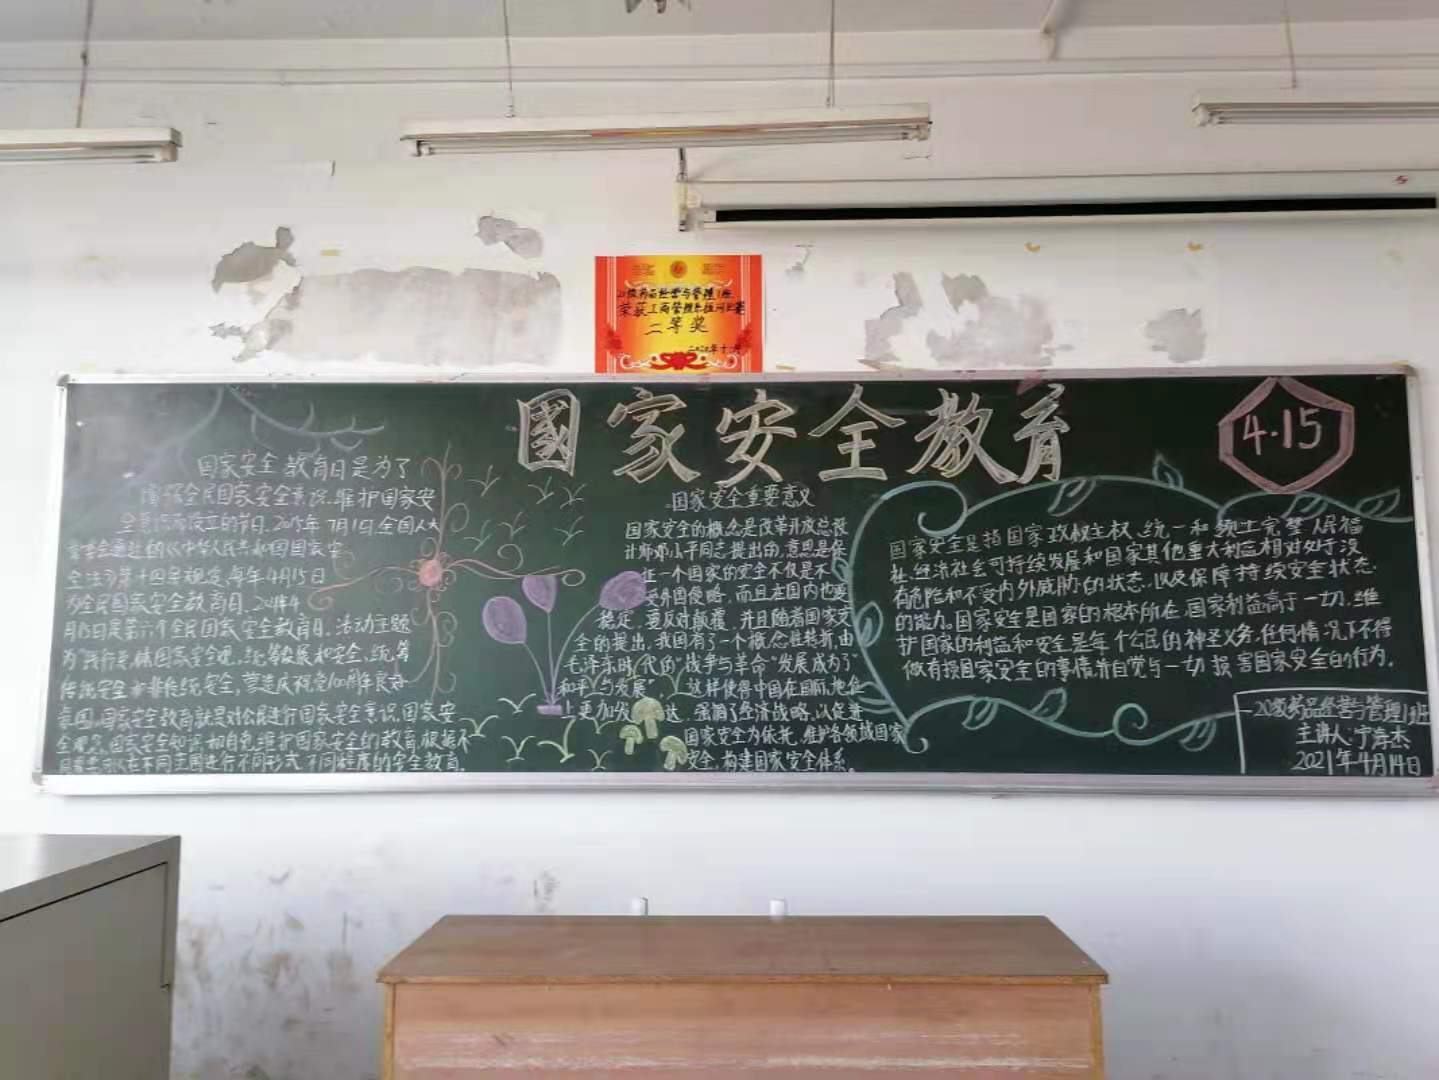 20级药品经营与管理1班
荣获工商管理系
二等奖
二〇二〇年十
國家安全教育
4·15
国家安全教育日是为了
增强全民国家安全意识、维护国家安
全 而设立的节日。2015年7月1日,全国人大
常委会通过的《中华人民共和国国家安
全法》第十四条规定,每年4月15日
为全民国家安全教育日。2021年4
月15日是第六个全民国家安全教育日。活动主题
为“践行总体国家安全观,统筹发展和安全,统筹
传统安全和非传统安全,营造庆祝党100周年良好
氛围。国家安全教育就是对公民进行国家安全意识、国家安
全观念、国家安全知识和自觉维护国家安全的教育,根据不
在不同 国进行不同形式、不同程度的安全教育。
国家安全重要意义
国家安全的概念是改革开放总设
计师邓小平同志提出的,意思是保
证一个国家的安全不仅是不
受外国侵略,而且在国内也要
稳定,要反对颠覆,并且随着国家安
全的提出,我国有了一个概念性转折,由
毛泽东时代的“战争与革命”发展成为了
“和平与发展” 这样使得中国在国际地位
上更加发达,强调了经济战略,以促进
国家安全为依托,维护各领域国家
安全,构建国家安全体系。
国家安全是指国家政权主权、统一和领土完整、人民福
祉、经济社会可持续发展和国家其他重大利益相对处于没
有危险和不受内外威胁的状态,以及保障持续安全状态
的能力。国家安全是国家的根本所在,国家利益高于一切,维
护国家的利益和安全是每个公民的神圣义务,任何情况下不得
做有损国家安全的事情并自觉与一切损害国家安全的行为。
20级药品经营与管理1班
主讲人:宁 杰
2021年4月14日